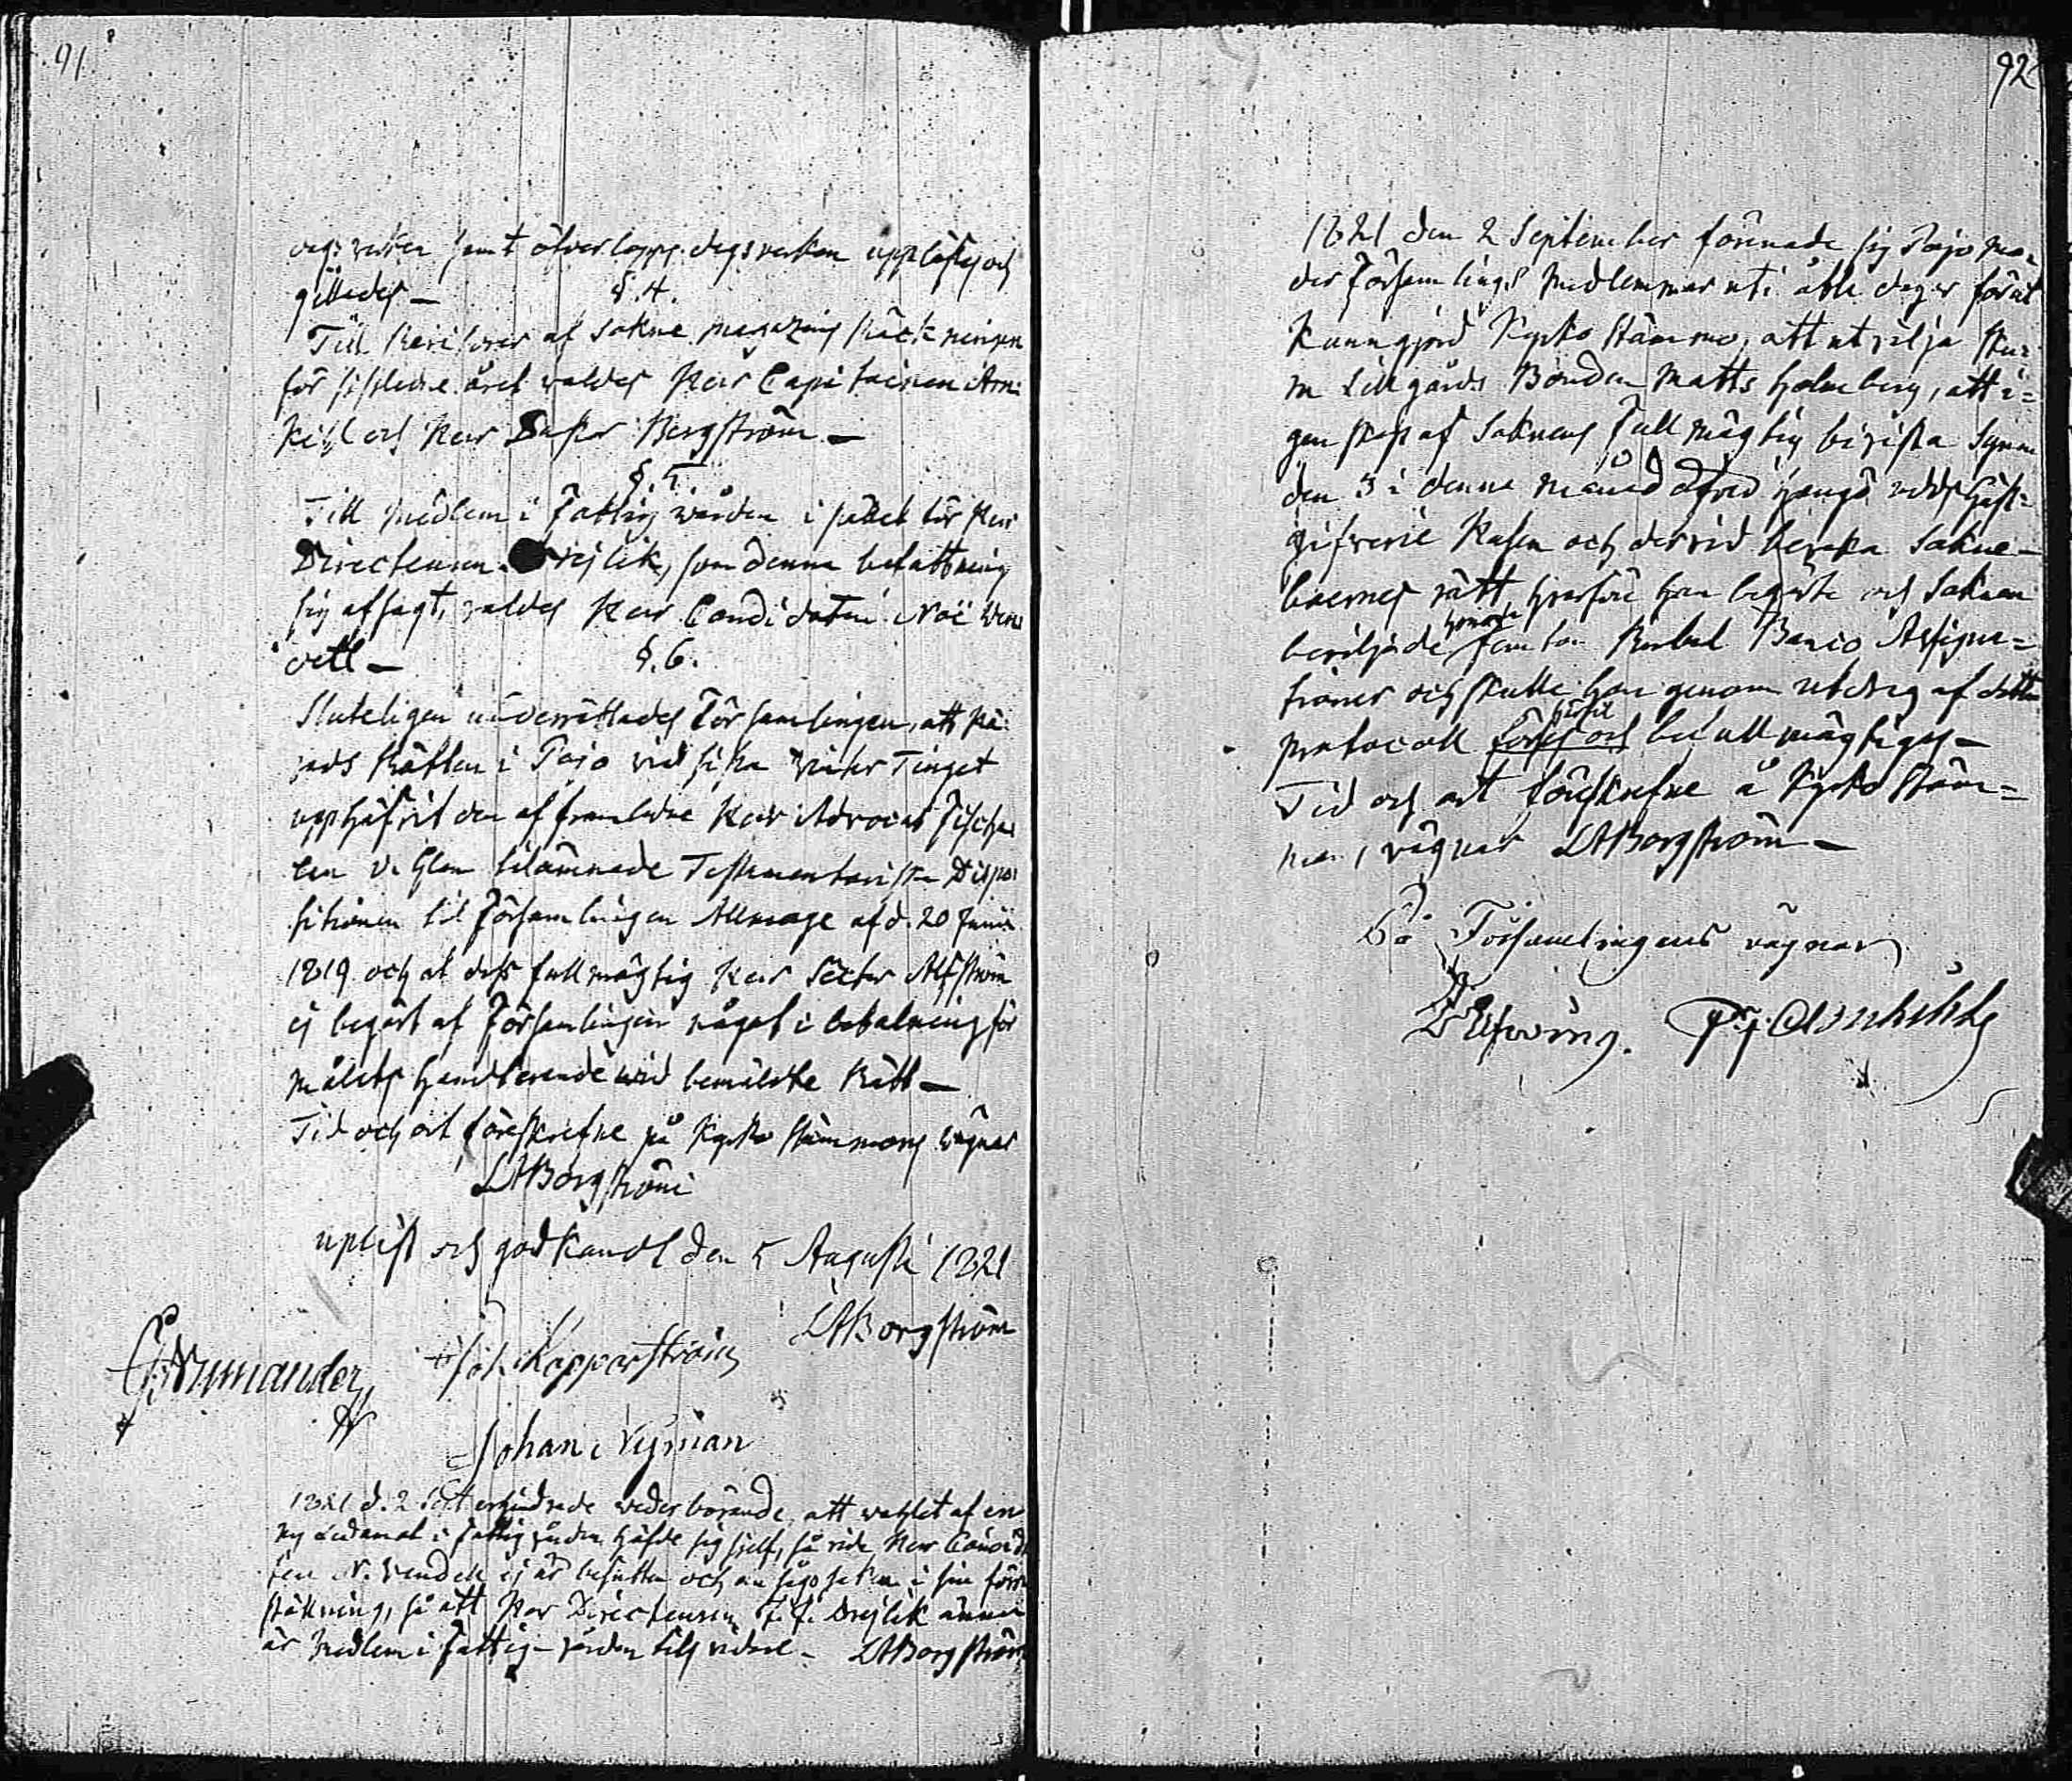 91
dagsverken samt öfverlopps dagsverken upplästes och
gillades –
§. 4.
Till Revisorer af Sokne magazins Räckningen
för sistledne året valdes Herr Capitainen Arn-
kihl och Herr Borgström –
§. 5.
Till medlem i Fattigvården i stället för Herr
Directeuren Drejlik, som denna befattning
sig afsagt, valdes Herr Candidaten Noë Wen
dell –
§. 6.
Sluteligen underrättades Församlingen, att Hä-
rads Rätten i Pojo vid sista Vinter Tinget
upphäfvit den af framledne Herr Advocat Fischa
len Testamentariska Dispo
sitionen til Församlingens Allmoge af d. 20 Junii
1819 och at dess fullmägtig Herr Alfström
ej begärt af Församlingen något i betalning för
målets handterande wid bemälde Rätt –
Tid och ort föreskrefne på Kyrko stämmans vägnar
LABorgström
upläst och godkändt den 5 Augusti 1821
LABorgström
Armander
Joh Kopparström
Johan Nyman
1821 d. 2 Sept erhindrade wederbörande, att wahlet af en
ny Ledamot i Fattigvården häfde sig sjelf, så vida Herr Candida
ten N. Wendell ej är besutten och i sin förra
ställning, så att Herr Directeuren Drejlik ännu
är Medlem i Fattig-vården tills vidare – LABorgström
92
1821 den 2 September förenade sig Pojo Mo-
der Församlings Medlemmar uti åtta dagar förut
kunngjord Kyrko stämma, att utvälja
Lillgårds Bonden Matts Holmberg, att i
genskap af Soknens Fullmägtig bivista Synen
den 3 i denne månad vid Hangö udds Gäst-
gifverie och dervid bevaka Sokne-
boernes rätt hvarföre han begärte och Soknen
beviljade honom femton Rubel Banco Assigna-
tioner och skulle han genom utdrag af detta
protocoll härtil befullmägtigas –
Tid och ort föreskrefne å Kyrko stäm-
mans vägnar LABorgström –
På Församlingens vägnar
Elfving.